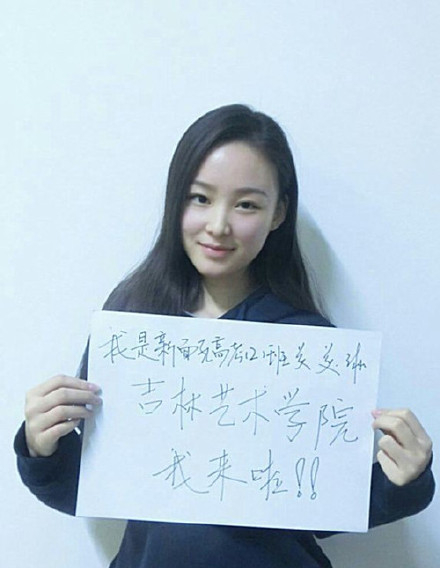 我是新面孔高考12班 美琳
吉林艺术学院
我来啦!!